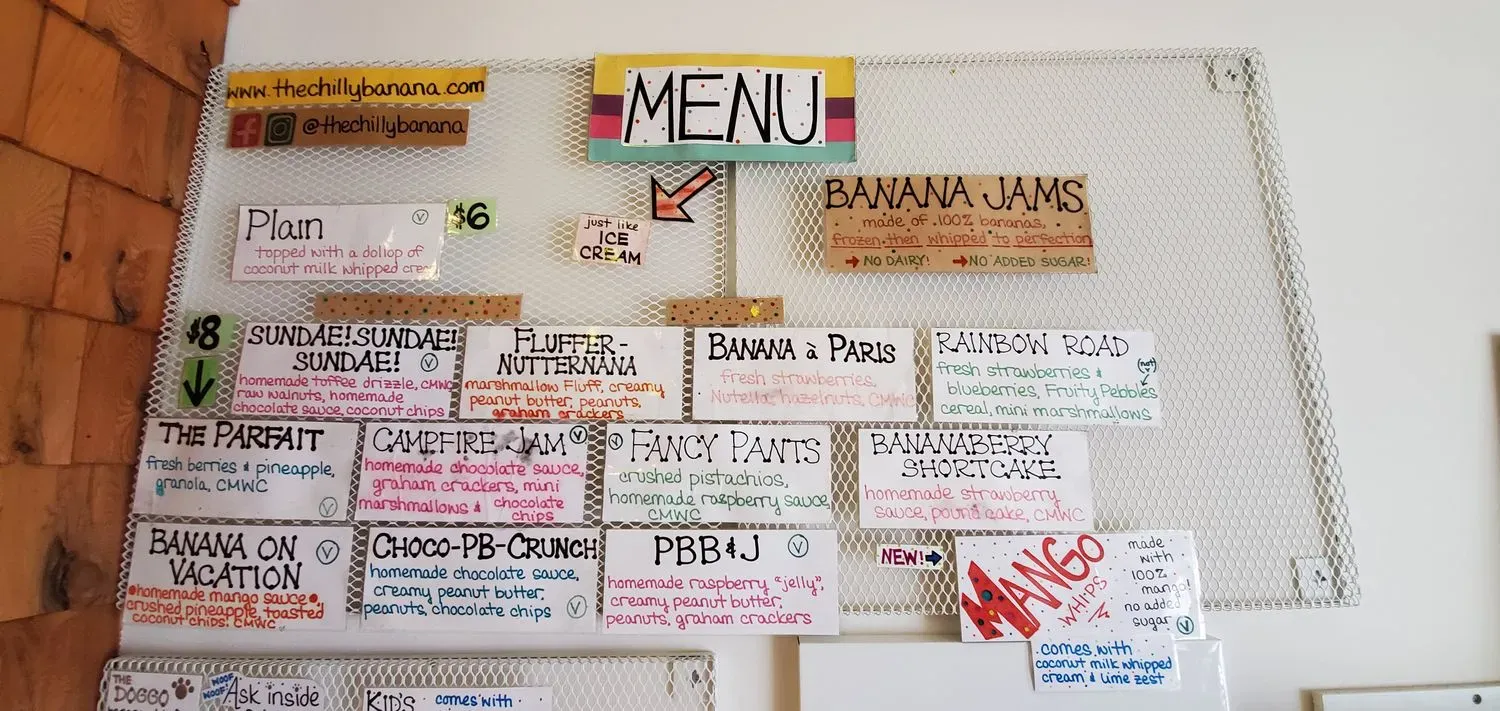 www.thechillybanana.com
@thechillybanana
MENU
Plain V
$6
topped with a dollop of
coconut milk whipped
just like
ICE
CREAM
BANANA JAMS
made of 100% bananas,
frozen then whipped to perfection
NO DAIRY! NO ADDED SUGAR!
$8
SUNDAE! SUNDAE!
SUNDAE! V
homemade toffee drizzle, CMWC
raw walnuts, homemade
chocolate sauce, coconut chips
FLUFFER-
NUTTERNANA
marshmallow Fluff, creamy
peanut butter, peanuts,
graham crackers
BANANA à PARIS
fresh strawberries,
Nutella, hazelnuts, CMWC
RAINBOW ROAD
fresh strawberries &
(not)
blueberries, Fruity Pebbles
cereal, mini marshmallows
THE PARFAIT
fresh berries & pineapple,
granola, CMWC
V
CAMPFIRE JAM V
homemade chocolate sauce,
graham crackers, mini
marshmallows & chocolate
chips
V FANCY PANTS
crushed pistachios,
homemade raspberry sauce,
CMWC
BANANABERRY
SHORTCAKE
homemade strawberry
sauce, pound cake, CMWC
BANANA ON V
VACATION
homemade mango sauce,
crushed pineapple, toasted
coconut chips, CMWC
CHOCO-PB-CRUNCH
homemade chocolate sauce,
creamy peanut butter,
peanuts, chocolate chips V
PBB & J V
homemade raspberry "jelly",
creamy peanut butter,
peanuts, graham crackers
NEW!
MANGO
WHIPS
made
with
100%
mango!
no added
sugar V
comes with
coconut milk whipped
cream & lime zest
THE
DOGGO
WOOF
WOOF!
Ask inside
KID'S
comes with